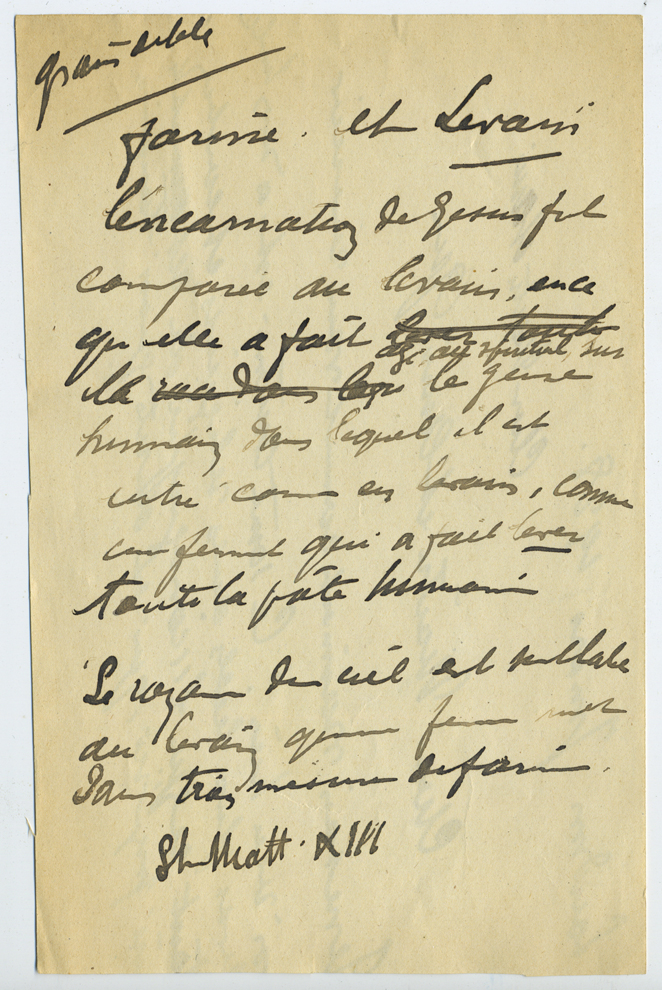 farine. et Levain
l'incarnation de Jesus fut
comparée au levain, en ce
qu'elle a fait lever toute
agi, au spirituel, sur
la le genre
humain dans lequel il est
entré comme en levain, comme
un ferment qui a fait lever
toute la pâte humaine
Le royaume du ciel est semblable
au levain qu'une femme met
dans trois mesures de farine.
St Matt. XIII